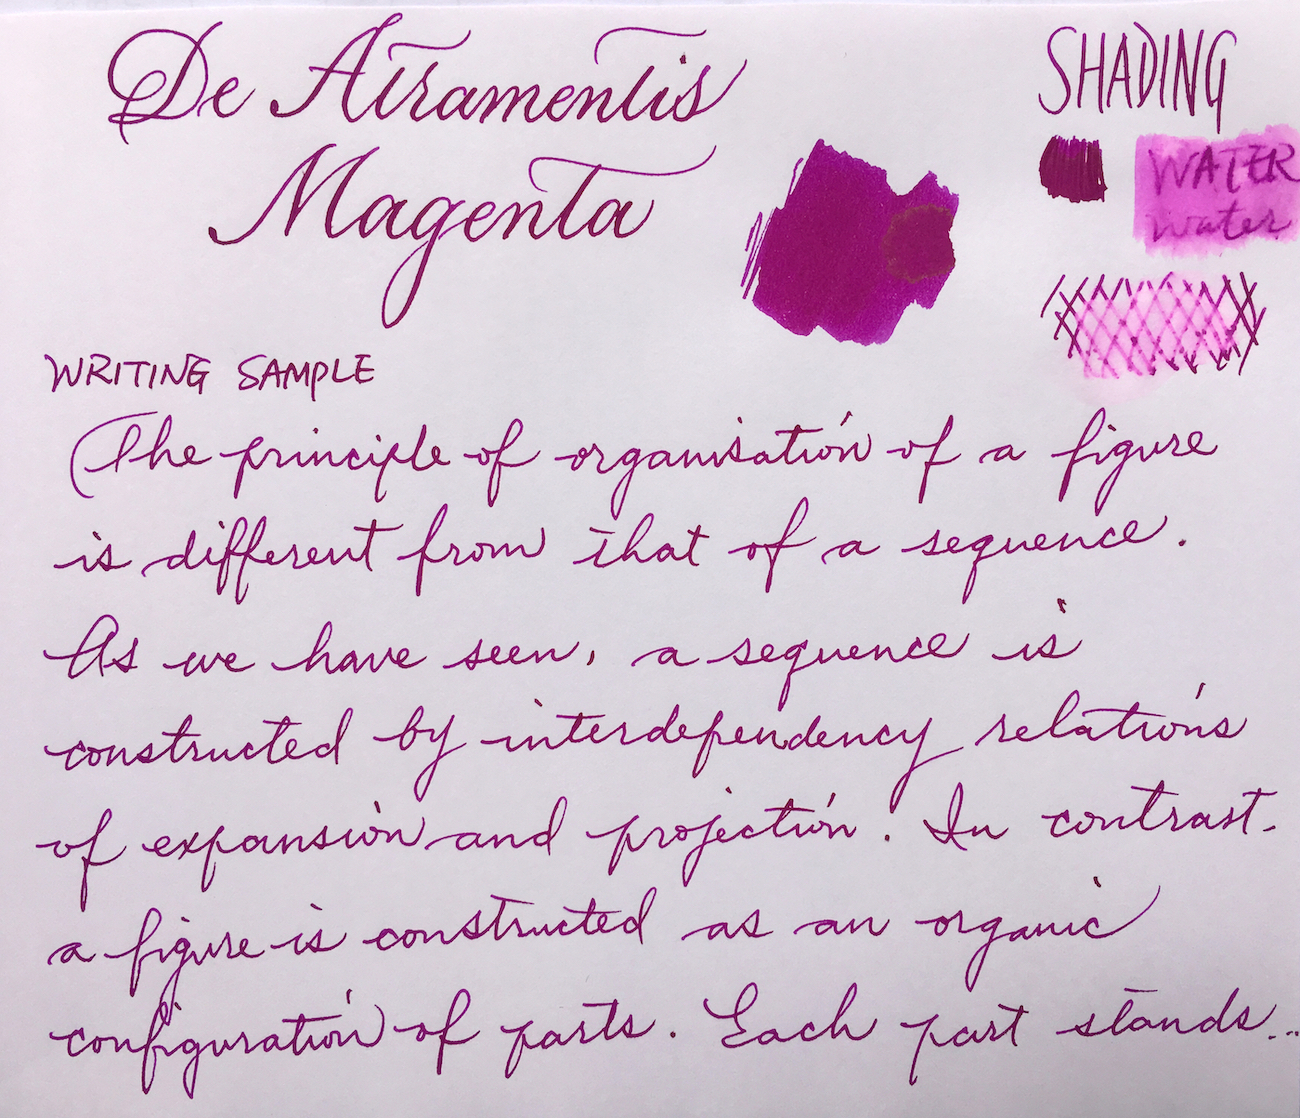 De Atramentis
Magenta
SHADING
WATER
water
WRITING SAMPLE
The principle of organisation of a figure
is different from that of a sequence.
As we have seen, a sequence is
constructed by interdependency relations
of expansion and projection. In contrast.
a figure is constructed as an organic
configuration of parts. Each part stands...